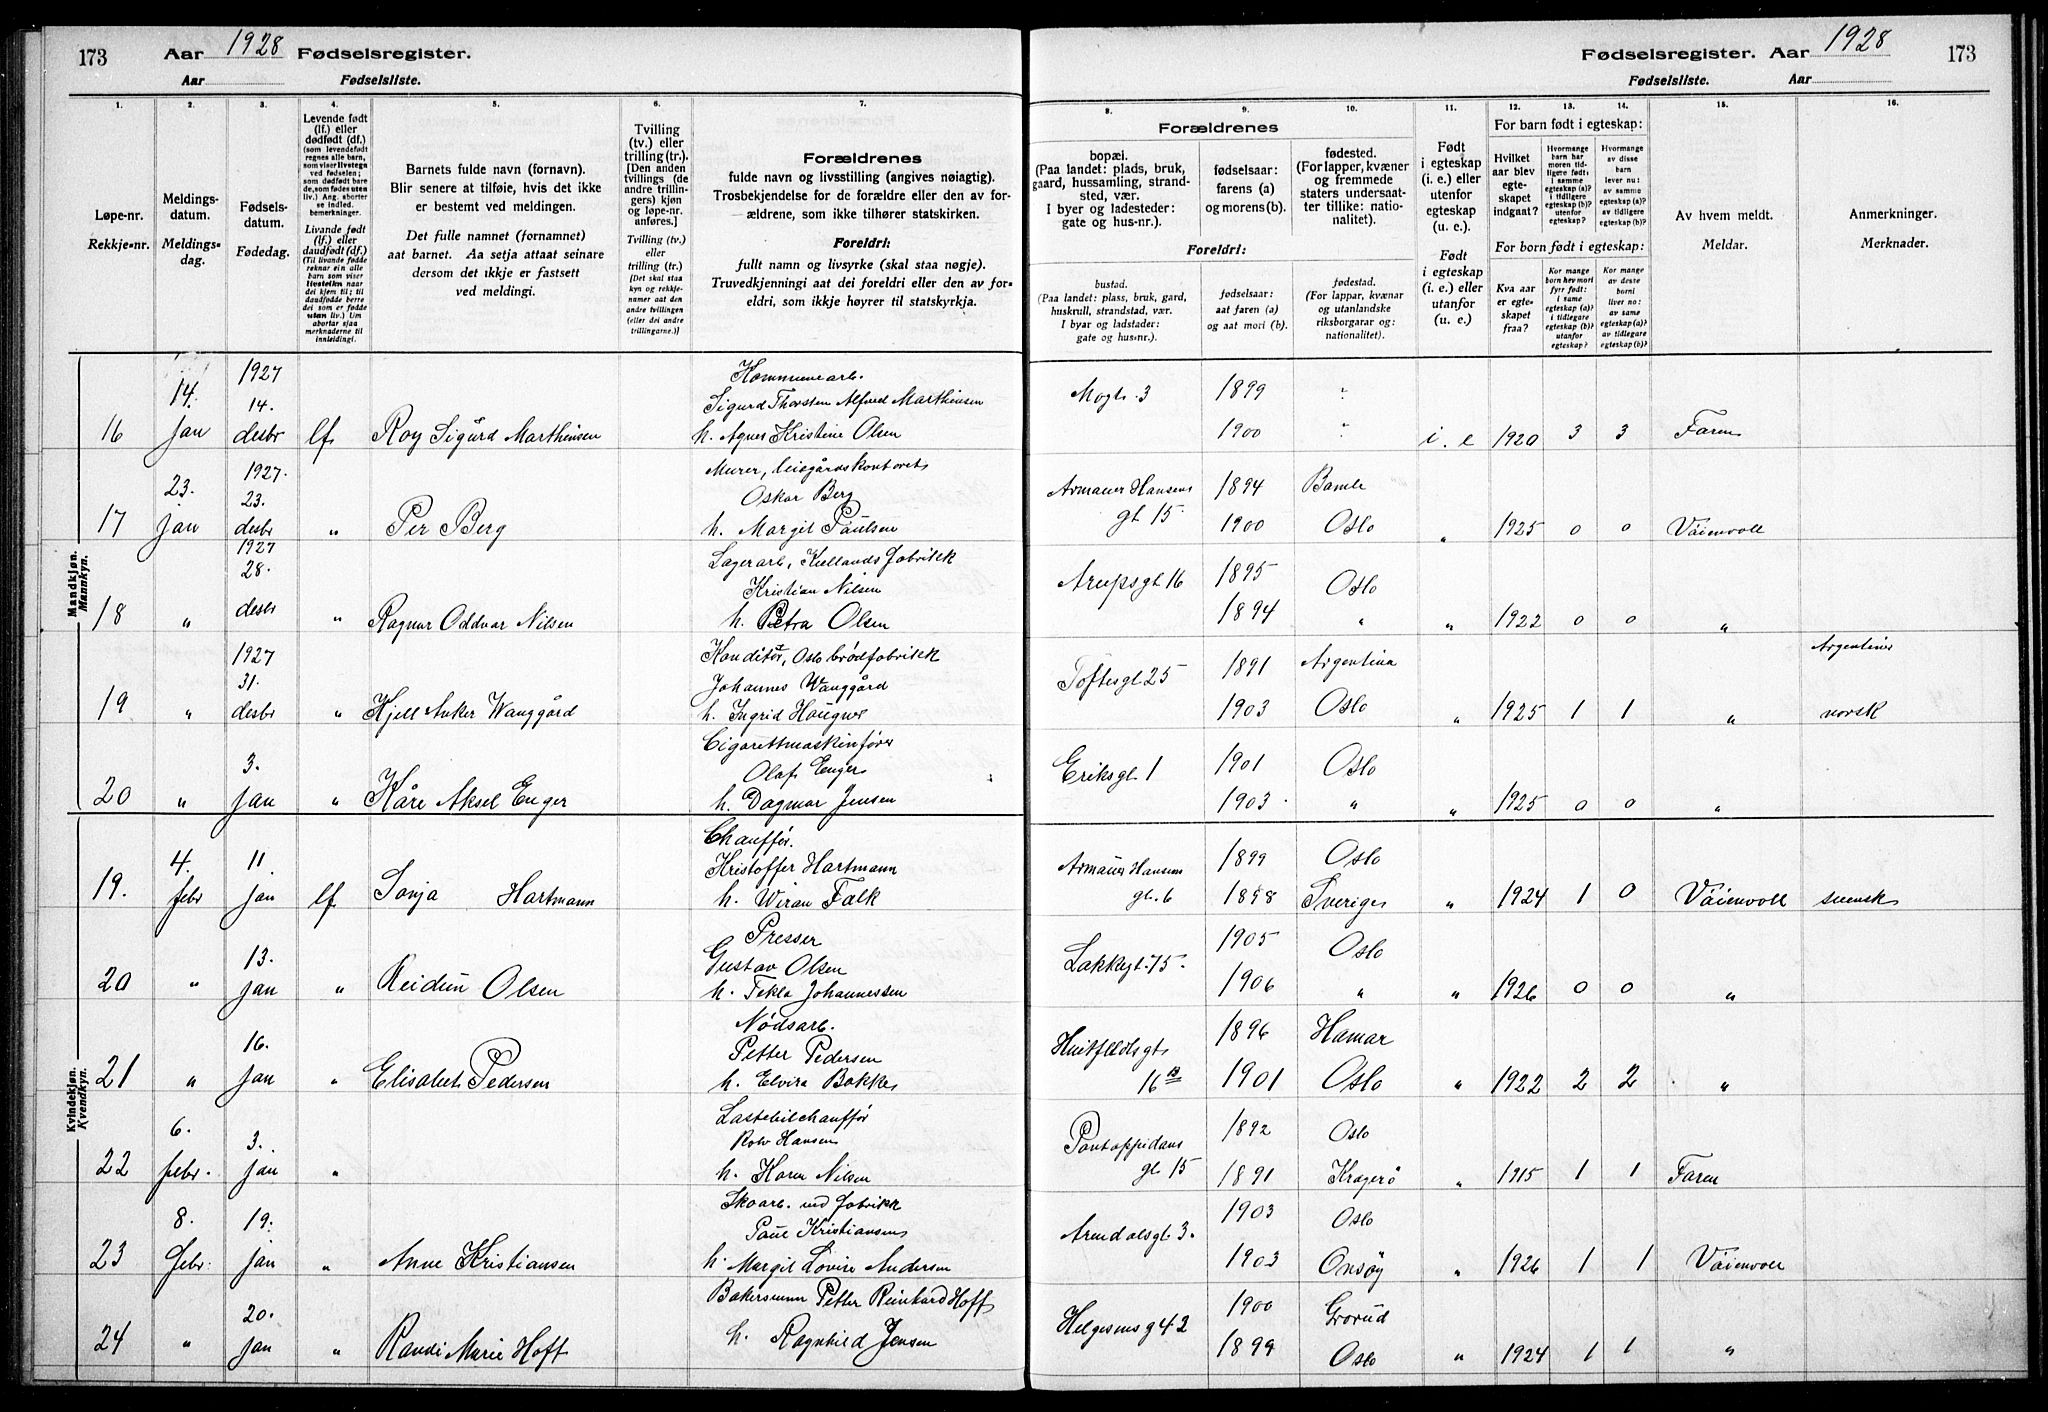 173 Aar 1928 Fødselsregister.
Aar Fødselsliste.
Fødselsregister. Aar 1928 173
Fødselsliste. Aar
1. 2. 3. 4. 5. 6. 7. 8. 9. 10. 11. 12. 13. 14. 15. 16.
Løpe-nr.
Rekkje-nr.
Meldings-
datum.
Meldings-
dag.
Fødsels-
datum.
Fødedag.
Levende født
(lf.) eller
dødfødt (df.)
(som levendefødt
regnes alle barn,
som viser livstegn
ved fødselen;
som dødfødt bare
de, som fødes uten
liv.) Ang. aborter
se indled.
bemerkninger.
Livande født
(lf.) eller
daudfødt (df.)
(Til livande fødde
reknar ein alle
barn som viser
livsteikn naar
dei kjem til; til
daudfødde berre
dei som er fødde
utan liv.) Um
abortar sjaa
merknaderne til
innleidingi.
Barnets fulde navn (fornavn).
Blir senere at tilføie, hvis det ikke
er bestemt ved meldingen.
Det fulle namnet (fornamnet)
aat barnet. Aa setja attaat seinare
dersom det ikkje er fastsett
ved meldingi.
Tvilling
(tv.) eller
trilling (tr.).
[Den anden
tvillings (de
andre trillin-
gers) kjøn
og løpe-nr.
anføres.]
Tvilling (tv.)
eller
trilling (tr.)
[Det skal staa
kyn og rekkje-
numer aat den
andre tvillingen
(eller dei andre
trillingarne.)]
Forældrenes
fulde navn og livsstilling (angives nøiagtig).
Trosbekjendelse for de forældre eller den av for-
ældrene, som ikke tilhører statskirken.
Foreldri:
fullt namn og livsyrke (skal staa nøgje).
Truvedkjenningi aat dei foreldri eller den av for-
eldri, som ikkje høyrer til statskyrkja.
Forældrenes
bopæl.
(Paa landet: plads, bruk,
gaard, hussamling, strand-
sted, vær.
I byer og ladesteder:
gate og hus-nr.).
fødselsaar:
farens (a)
og morens (b).
fødested.
(For lapper, kvæner
og fremmede
staters undersaat-
ter tillike: natio-
nalitet).
Foreldri:
bustad.
(Paa landet: plass, bruk, gard,
huskrull, strandstad, vær.
I byar og ladstader:
gate og hus-nr.).
fødselsaar:
aat faren (a)
og aat mori (b).
fødestad.
(For lappar, kvænar
og utanlandske
riksborgarar og:
nationalitet).
Født
i egteskap
(i. e.) eller
utenfor
egteskap
(u. e.).
Født
i egteskap
(i. e.) eller
utanfor
(u. e.)
For barn født i egteskap:
Hvilket
aar blev
egte-
skapet
indgaat?
Hvormange
barn har
moren tid-
ligere født:
i samme
egteskap (a)?
i tidligere
egteskap (b)?
utenfor
egteskap?
Hvormange
av disse
barn
lever nu:
av samme
egteskap (a)?
av tidligere
egteskap (b)?
For born født i egteskap:
Kva aar
er egte-
skapet
fraa?
Kor mange
born hev mori
fyrr født:
i same
egteskap (a)?
i tidlegare
egteskap (b)?
utanfor
egteskap?
Kor mange
av desse
borni
liver no:
av same
egteskap (a)?
av tidlegare
egteskap (b)?
Av hvem meldt.
Meldar.
Anmerkninger.
Merknader.
Mandkjøn.
Mannkyn.
1927
14. 14. Kommunearb. Mogt. 3 1899 "
Sigurd Thorsten Alfred Marthinsen
16 jan desbr lf. Roy Sigurd Marthinsen h. Agnes Kristine Olsen 1900 " i. e 1920 3 3 Faren
1927. Murer,
23. 23. Oskar Berg Armauer Hansens 1894 Bamle
17 jan desbr " Per Berg h. Margit Paulsen gt. 15 1900 Oslo " 1925 0 0 Vøienvoll
1927 Lagerarb, Kiellands fabrikk
28. Kristian Nilsen Arupsgt. 16 1895 Oslo
18 " desbr " Ragnar Oddvar Nilsen h. Petra Olsen 1894 " " 1922 0 0 "
1927 Konditor, Oslo brødfabrikk Argentiner
31. Johannes Wanggård Toftesgt. 25 1891 Argentina
19 " desbr " Kjell Anker Wanggård h. Ingrid Haugnes 1903 Oslo " 1925 1 1 " norsk
Cigarettmaskinfører
3. Olaf Enger Eriksgt. 1 1901 Oslo
20 " jan " Kåre Aksel Enger h. Dagmar Jensen 1903 " " 1925 0 0 "
Kvindekjøn.
Kvendkyn.
Chauffør.
4. 11. Kristoffer Hartmann Armauer Hansens 1899 Oslo
19. febr jan lf. Sonja Hartmann h. Wiran Falk gt. 6 1898 Sverige " 1924 1 0 Vøienvoll svensk
Presser 1905 Oslo
13. Gustav Olsen Lakkegt. 75.
20 " jan " Reidun Olsen h. Tekla Johannessen 1906 " " 1926 0 0 "
Nødsarb.
16. Petter Pedersen Huitfeldtsgt 1896 Hamar
21 " jan " Elisabet Pedersen h. Elvira Bakke 16 B 1901 Oslo " 1922 2 2 "
Lastebilchauffør
6. 3. Rolv Hansen Pontoppidans 1892 Oslo
22 febr. jan " h. Karen Nilsen gt. 15 1891 Kragerø " 1915 1 1 Faren
Skoarb. ved fabrikk
8. 19. Paul Kristiansen Arendalsgt. 3. 1903 Oslo
23 febr. jan " Anne Kristiansen h. Margit Lovise Andersen 1903 Onsøy " 1926 1 1 Vøienvoll
Bakersvenn Petter Reinhard Hoff
20. Helgesensg 42 1900 Grorud
24 " jan " Randi Marie Hoff h. Ragnhild Jensen 1899 Oslo " 1924 1 1 "